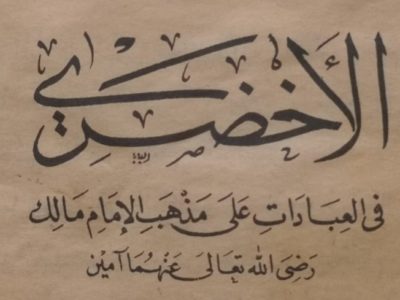 الأخضري
في العِبَادَاتِ عَلَى مَذْهَبِ الإِمَامِ مَالِك
رَضِيَ اللهُ تعَالَى عَنْهُمَا آمِيْن